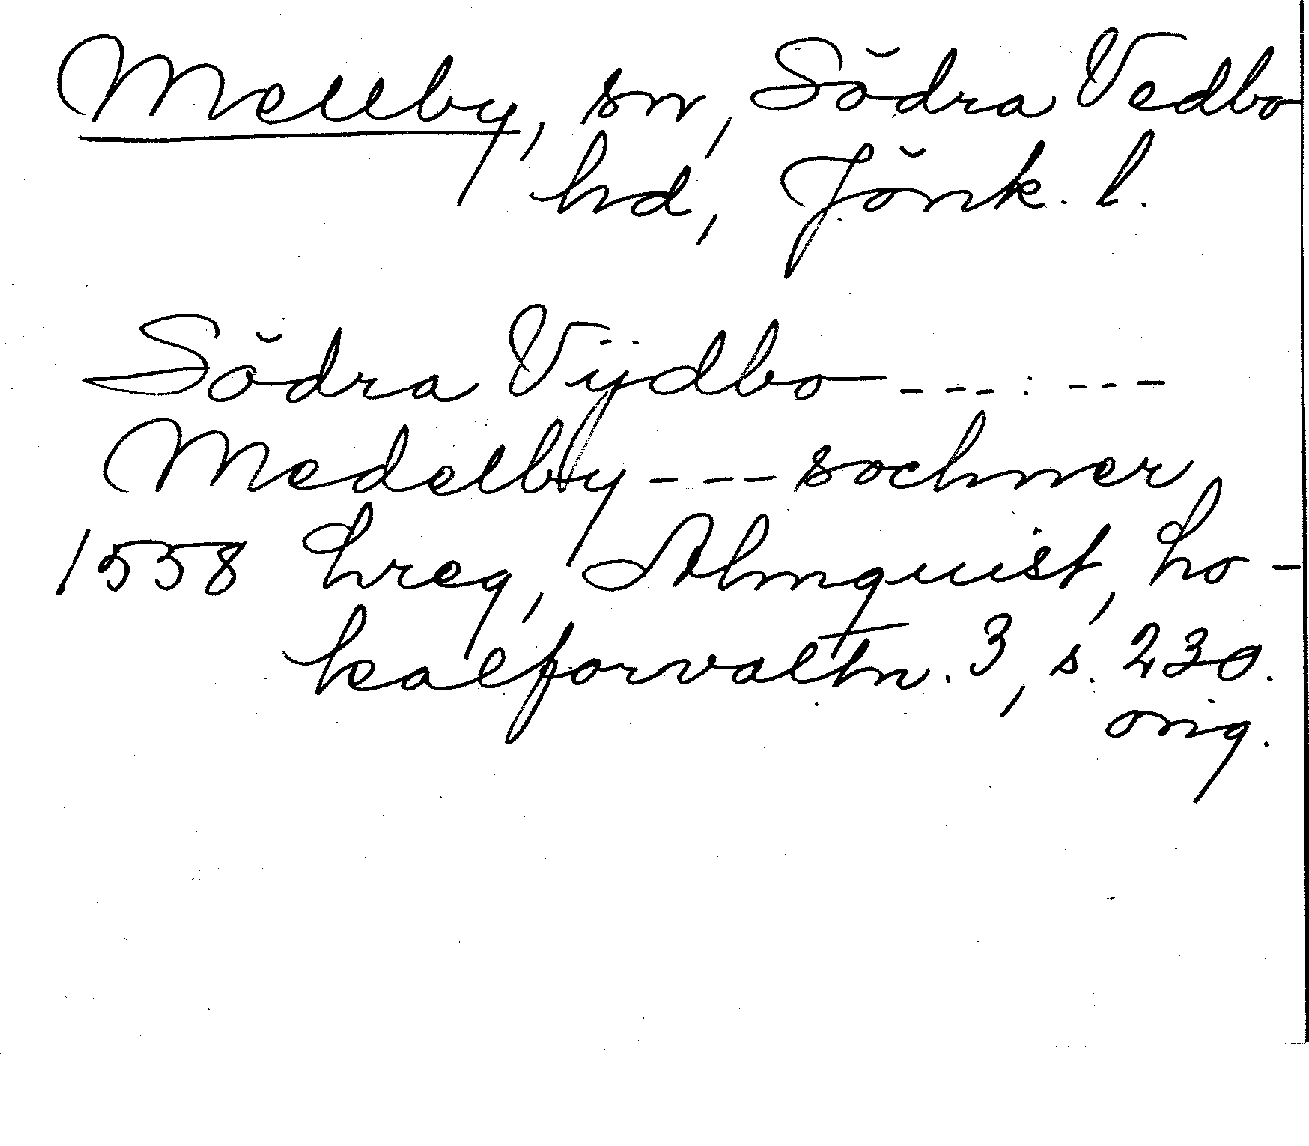 Mellby, sn, Södra Vedbo
hd, Jönk. l.
Södra Vijdbo ---: ---
Medelby --- sochner
1558 Lreg, Almquist, Lo-
kalförvaltn. 3, s. 230.
orig.